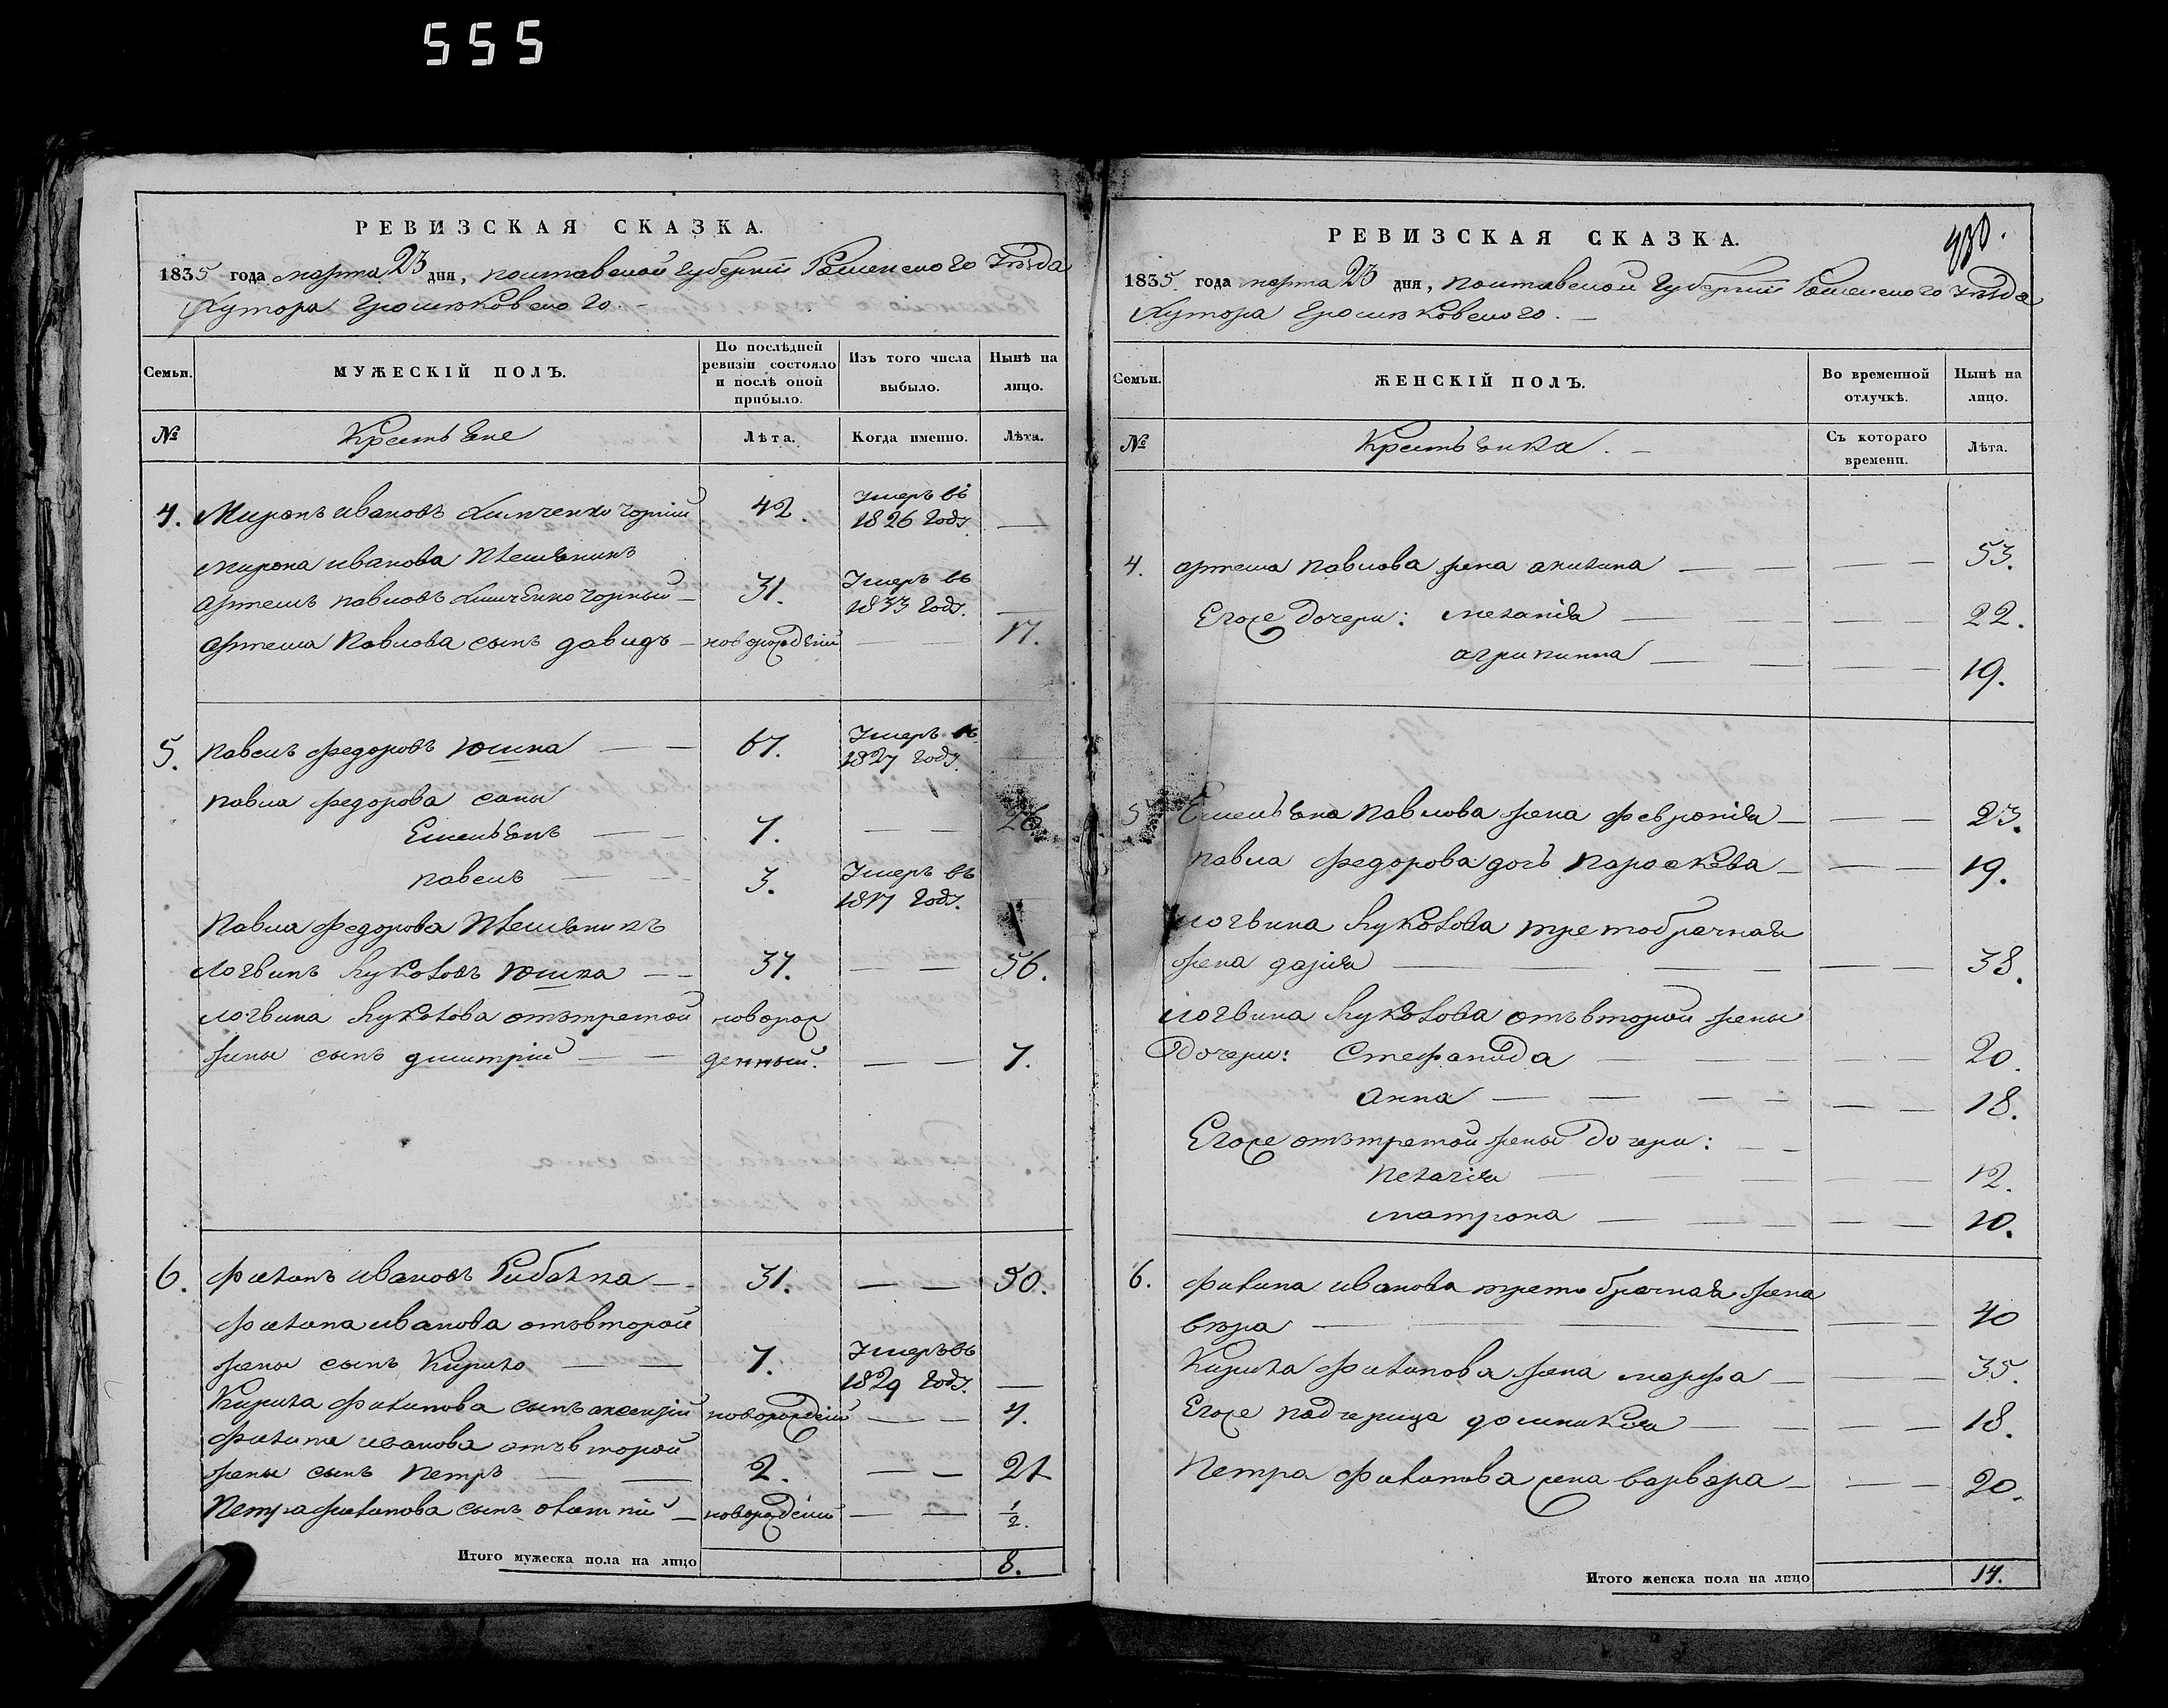 555
РЕВИЗСКАЯ СКАЗКА.
1835 года марта 23 дня, полтавской губернiи Роменского уѣзда
Хутора
Семьи.
МУЖЕСКIЙ ПОЛЪ.
По послѣдней ревизiи состояло и послѣ оной прибыло.
Изъ того числа выбыло.
Нынѣ на лицо.
№
Крестьяне
Лѣта.
Когда именно.
Лѣта.
4. Миронъ ивановъ 42. Умеръ въ 1826 году. —
Мирона иванова племѣникъ
артемъ павловъ 31. Умеръ въ 1833 году. —
артема павлова сынъ давидъ — новорожденій — — 17.
5. павелъ федоровъ юшка — — 67. Умеръ въ 1827 году. —
павла федорова сыны
Емельянъ — — 7. — — 26.
павелъ — — 3. Умеръ въ 1817 году. —
Павла федорова племѣникъ
логвинъ луковъ юшка — — 37. — — 56.
логвина лукова отътретой новорож
жены сынъ димитрiй — — денный. — — 7.
6. филипъ ивановъ — 31. — — 50.
филипа иванова отъвторой
жены сынъ Кирило — — 7. Умеръ въ 1829 году. —
Кирила филипова сынъ новорождéній — — 7.
филипа иванова отъвторой
жены сынъ петръ — — 2. — — 21
Петра филипова сынъ — новорождéній — — 1/2.
Итого мужеска пола на лицо 8.
РЕВИЗСКАЯ СКАЗКА.
1835. года марта 23 дня, полтавской губернiи Роменского уѣзда
Хутора
Семьи.
ЖЕНСКIЙ ПОЛЪ.
Во временной отлучкѣ.
Нынѣ на лицо.
№
Крестьянка. —
Съ котораго времени.
Лѣта.
4. артема павлова жена акилина — — — — 53.
Егоже дочери: меланія — — — — 22.
агрипина — — — — 19.
5 Емельяна павлова жена февронія — — — 23.
павла федорова дочь параскева — — — 19.
логвина лукова третобрачная
жена дарія — — — — — 38.
логвина лукова отъвторой жены
дочери: Стефанида — — — — — 20.
анна — — — — — — 18.
Егоже отътретой жены дочери: — —
пелагія — — — — 12.
матрона — — — — — 10.
6. филипа иванова третобрачная жена
вѣра — — — — — 40
Кирила филипова жена марфа — — — 35.
Егоже падчерица домникія — — — — 18.
Петра филипова жена варвара — — — 20.
Итого женска пола на лицо 14.